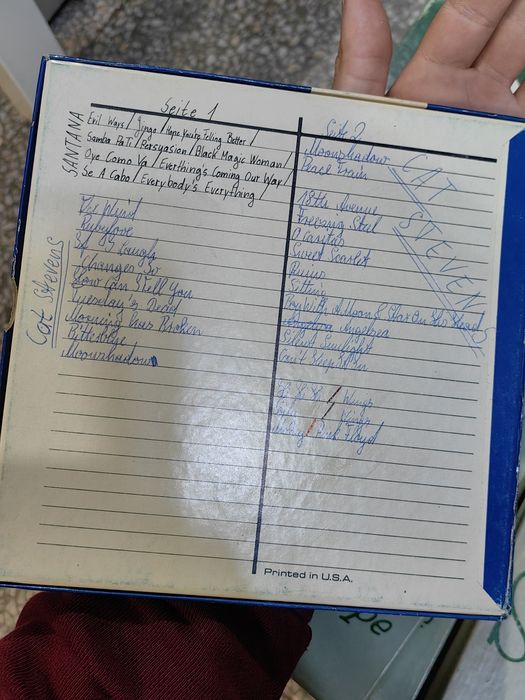 Seite 1
SANTANA
Evil Ways / Jingo / Hope You're Telling Better /
Samba Pa Ti / Persuasion / Black Magic Woman /
Oye Como Va / Everthing's Coming Our Way /
Se A Cabo / Everybody's Everything
Cat Stevens
Rubylove
If I Laugh
Changes
How Can I Tell You
Tuesday's Dead
Morning Has Broken
Bitterblue
Moonshadow
Seite 2
CAT STEVENS
Moonshadow
Peace Train
18th Avenue
Freezing Steel
O Caritas
Sweet Scarlet
Ruins
Sitting
Boy With A Moon & Star On His Head
Angelsea
Silent Sunlight
Can't Keep It In
Hi Hi Hi / Wings
/ Wings
/ Pink Floyd
Printed in U.S.A.